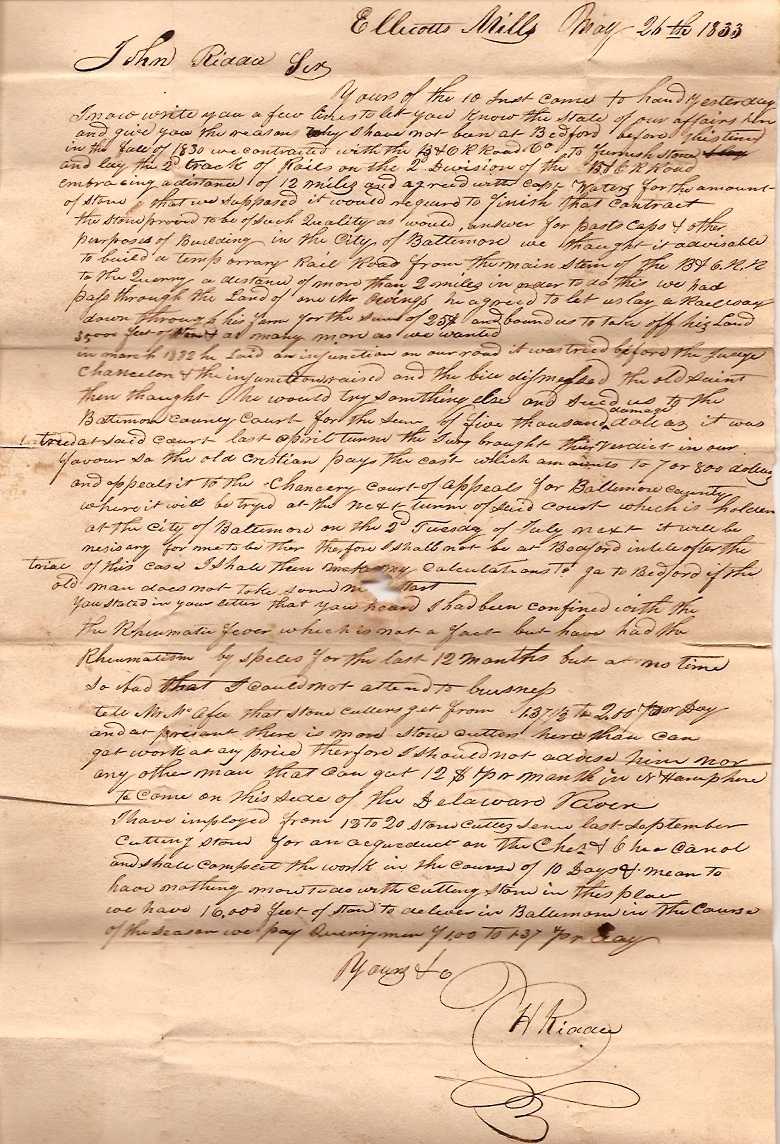 Ellicotts Mills May 26th 1833
John Riddle Sir
Yours of the 10 Inst came to hand yesterday
I now write you a few lines to let you know the state of our affairs
and give you the reason why I have not been at Bedford before this time
in the fale of 1830 we contracted with the B & O R Road Co to furnish stone
and lay the 2d track of Rails on the 2d Division of the B & O R Road
embracing a distance of 12 miles and agreed with Capt Waters for the amount
of stone that we supposed it would requier to finish that contract
the stone proved to be of such Quality as would answer for posts caps & other
purposes of Building in the City of Baltimore we thought it advisable
to build a temporrary Rail Road from the main stem of the B & O. R. R
to the Querry a distance of more than 2 miles in order to do this we had
pass through the Land of one Mr Owings he agreed to let us lay a Railway
down through his farm for the sum of 25$ and bound us to take off his Land
35000 feet of & as many more as we wanted
in march 1832 he Laid an injunction on our road it was tried before the Judge
Chancelon & the injunction raised and the bill dismessed the old saint
then thought he would try something else and sued us to the
Baltimore County Court for the sum of five thousand damage dollars it was
tried at said court last April turm the Jury brought their Verdict in our
favour so the old Cristian pays the cost which amounts to 7 or 800 dollars
and appeals it to the Chancery Court of Appeals for Baltimore County
where it will be tryed at the next turm of said court which is holden
at the City of Baltimore on the 2d Tuesday of July next it will be
nesisary for me to be ther therfore I shall not be at Bedford untile after the
trial of this case I shall then make my calculations to go to Bedford if the
old man does not take some start
You stated in your letter that you heard I had been confined with the
the Rheumatic fever which is not a fact but have had the
Rheumatism by speles for the last 12 months but at no time
so bad that I could not attend to business
tell Mr McAfee that stone cutters get from 1.37½ to 2.00 pr Day
and at present there is more stone cutters here than can
get work at any price therfore I should not advise him nor
any other man that can get 12 $ pr month in N Hampshere
to come on this side of the Delaward River
I have imployed from 18 to 20 stone cutters sence last september
cutting stone for an acqueduct on the Chez & Oheo Canol
and shall compleet the work in the course of 10 Days & mean to
have nothing more to do with cutting stone in this place
we have 16,000 feet of stone to deliver in Baltimore in the Course
of the season we pay Querrymen $1.00 to 1.37 pr day
Yours &c
H Riddle